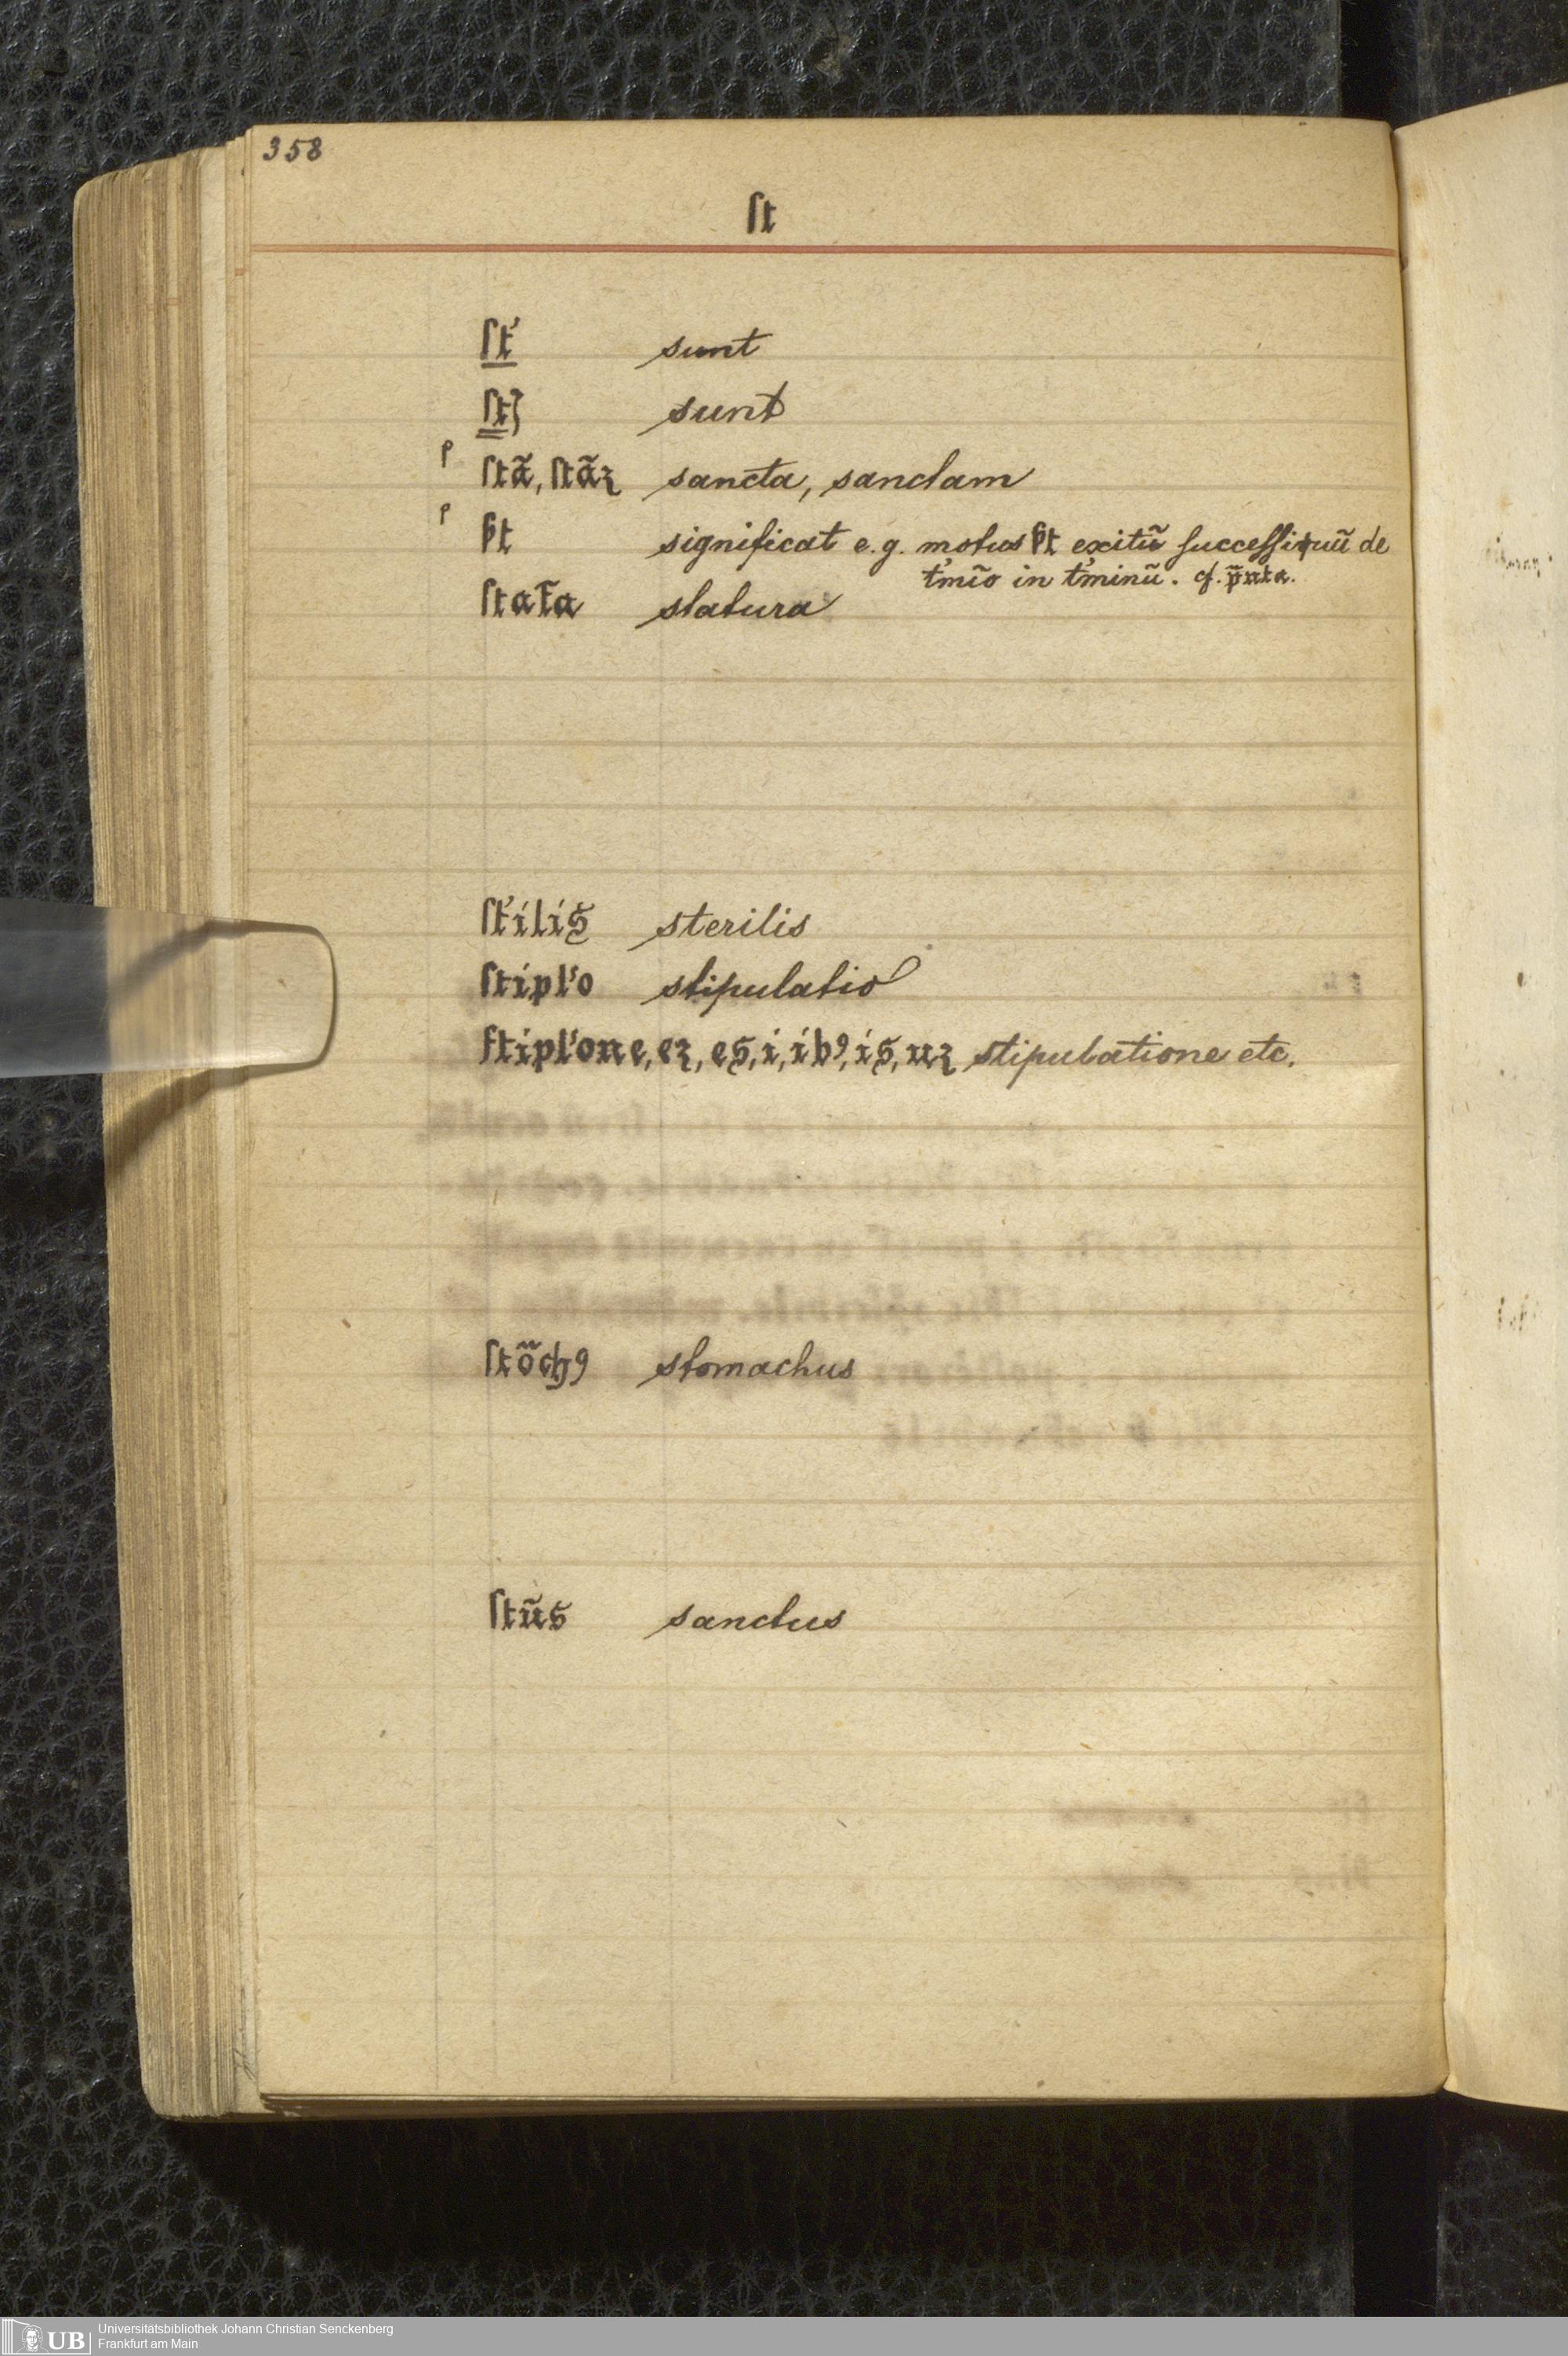 358
ſt
ſt' sunt
ſtꝫ sunt
ſtã, ſtãꝫ sancta, sanctam
ſt significat e.g. motus ſt exitũ ſucceſſiuũ de
t'mĩo in t'minũ. cf. p̃nta.
ſtat̄a statura
ſt'ilis sterilis
ſtipl'o stipulatio
ſtipl'one, eꝫ, es, i, ibꝰ, is, uꝫ stipulatione etc.
ſtõchꝰ stomachus
ſtũs sanctus
UB Universitätsbibliothek Johann Christian Senckenberg
Frankfurt am Main